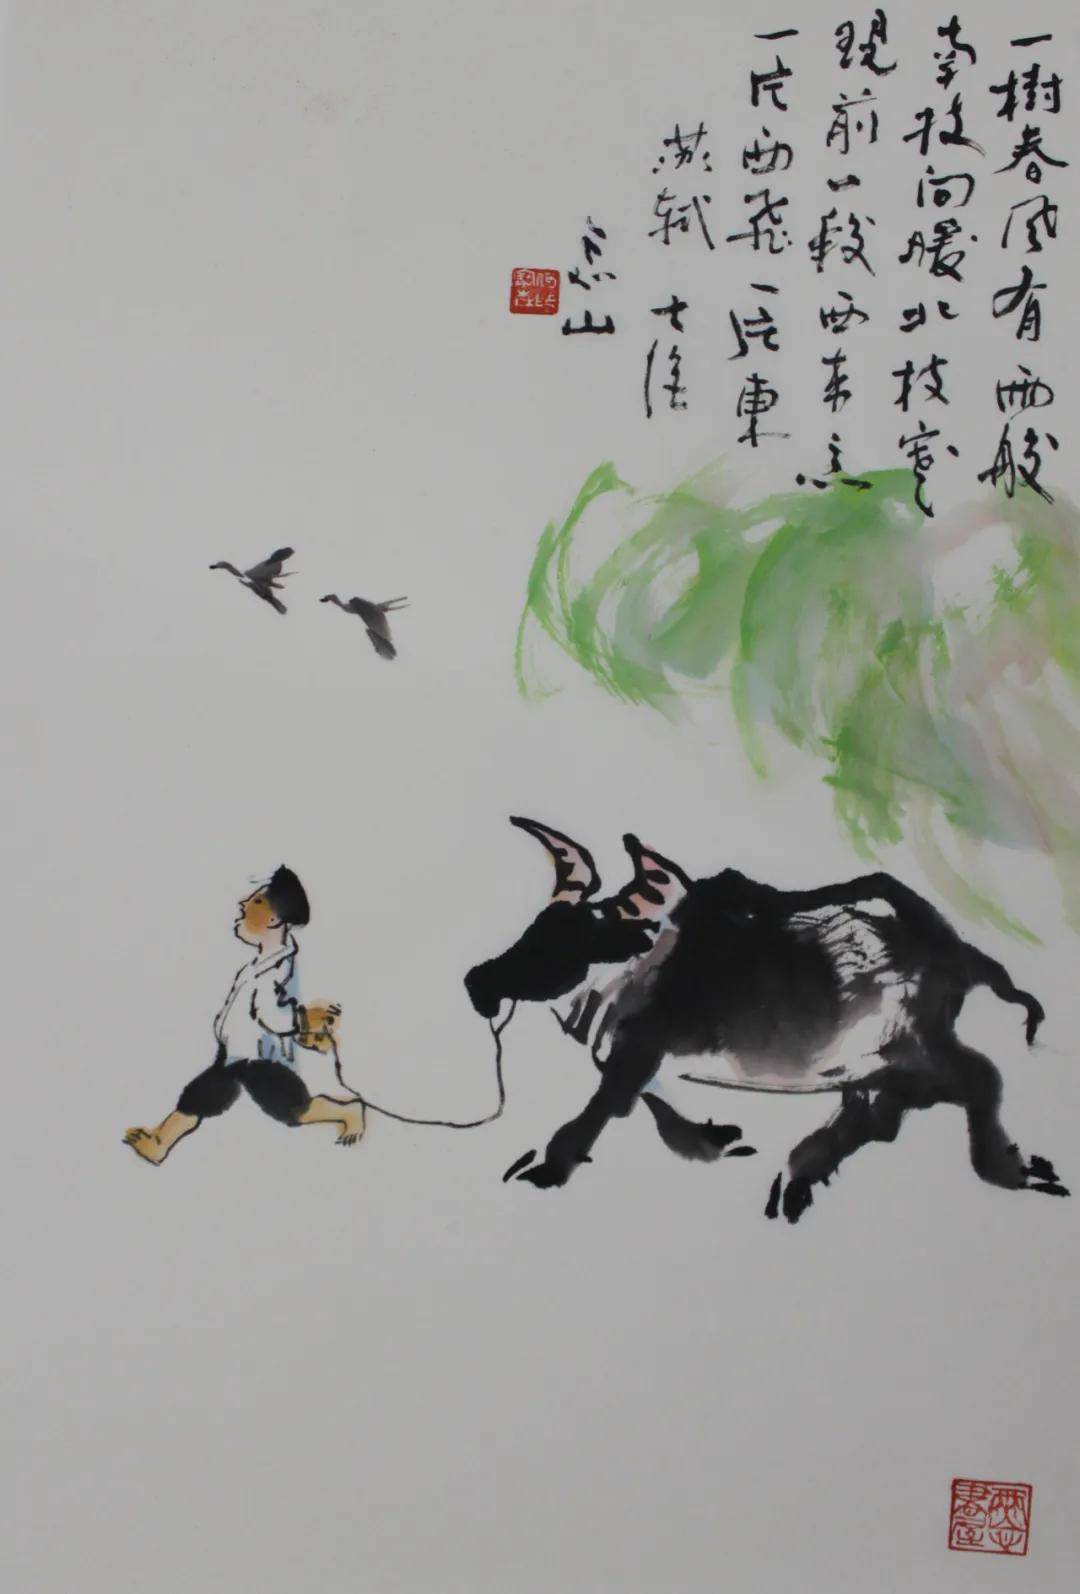 一樹春風有两般
南枝向暖北枝寒
現前一段西来意
一片西飛一片東
蘇軾
山